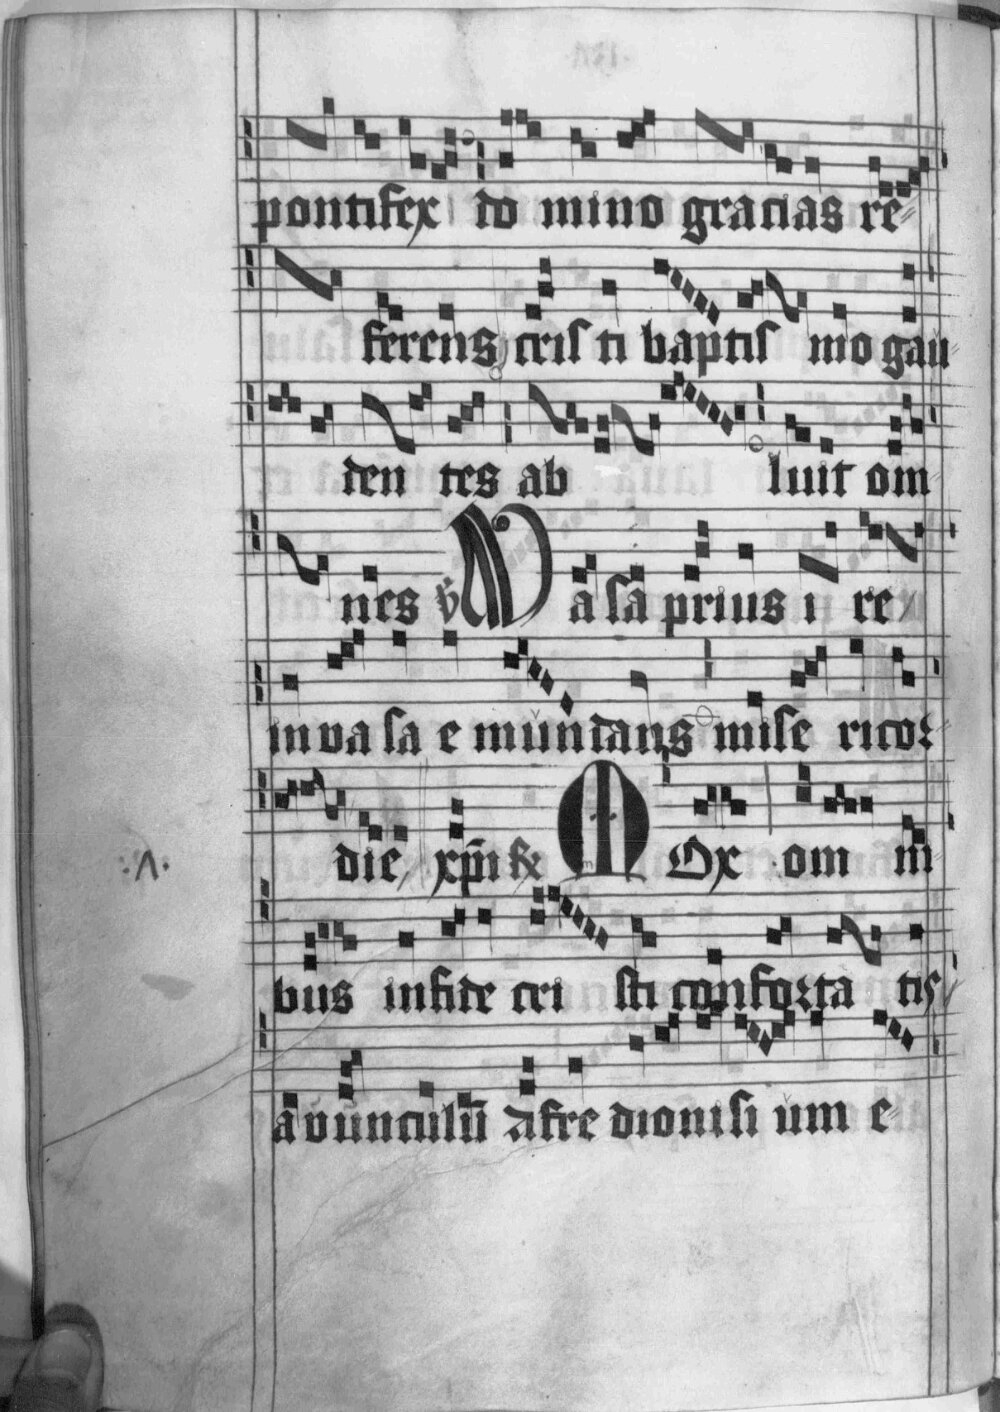 pontifex do mino gracias re
ferens cris ti baptis mo gau
den tes ab luit om
nes v̄ Vasa prius i re
in va sa e mundans mise ricor
die xp̄i M Ox om ni
bus in fide cri sti conforta tis
avunculū Afre dionisi um e